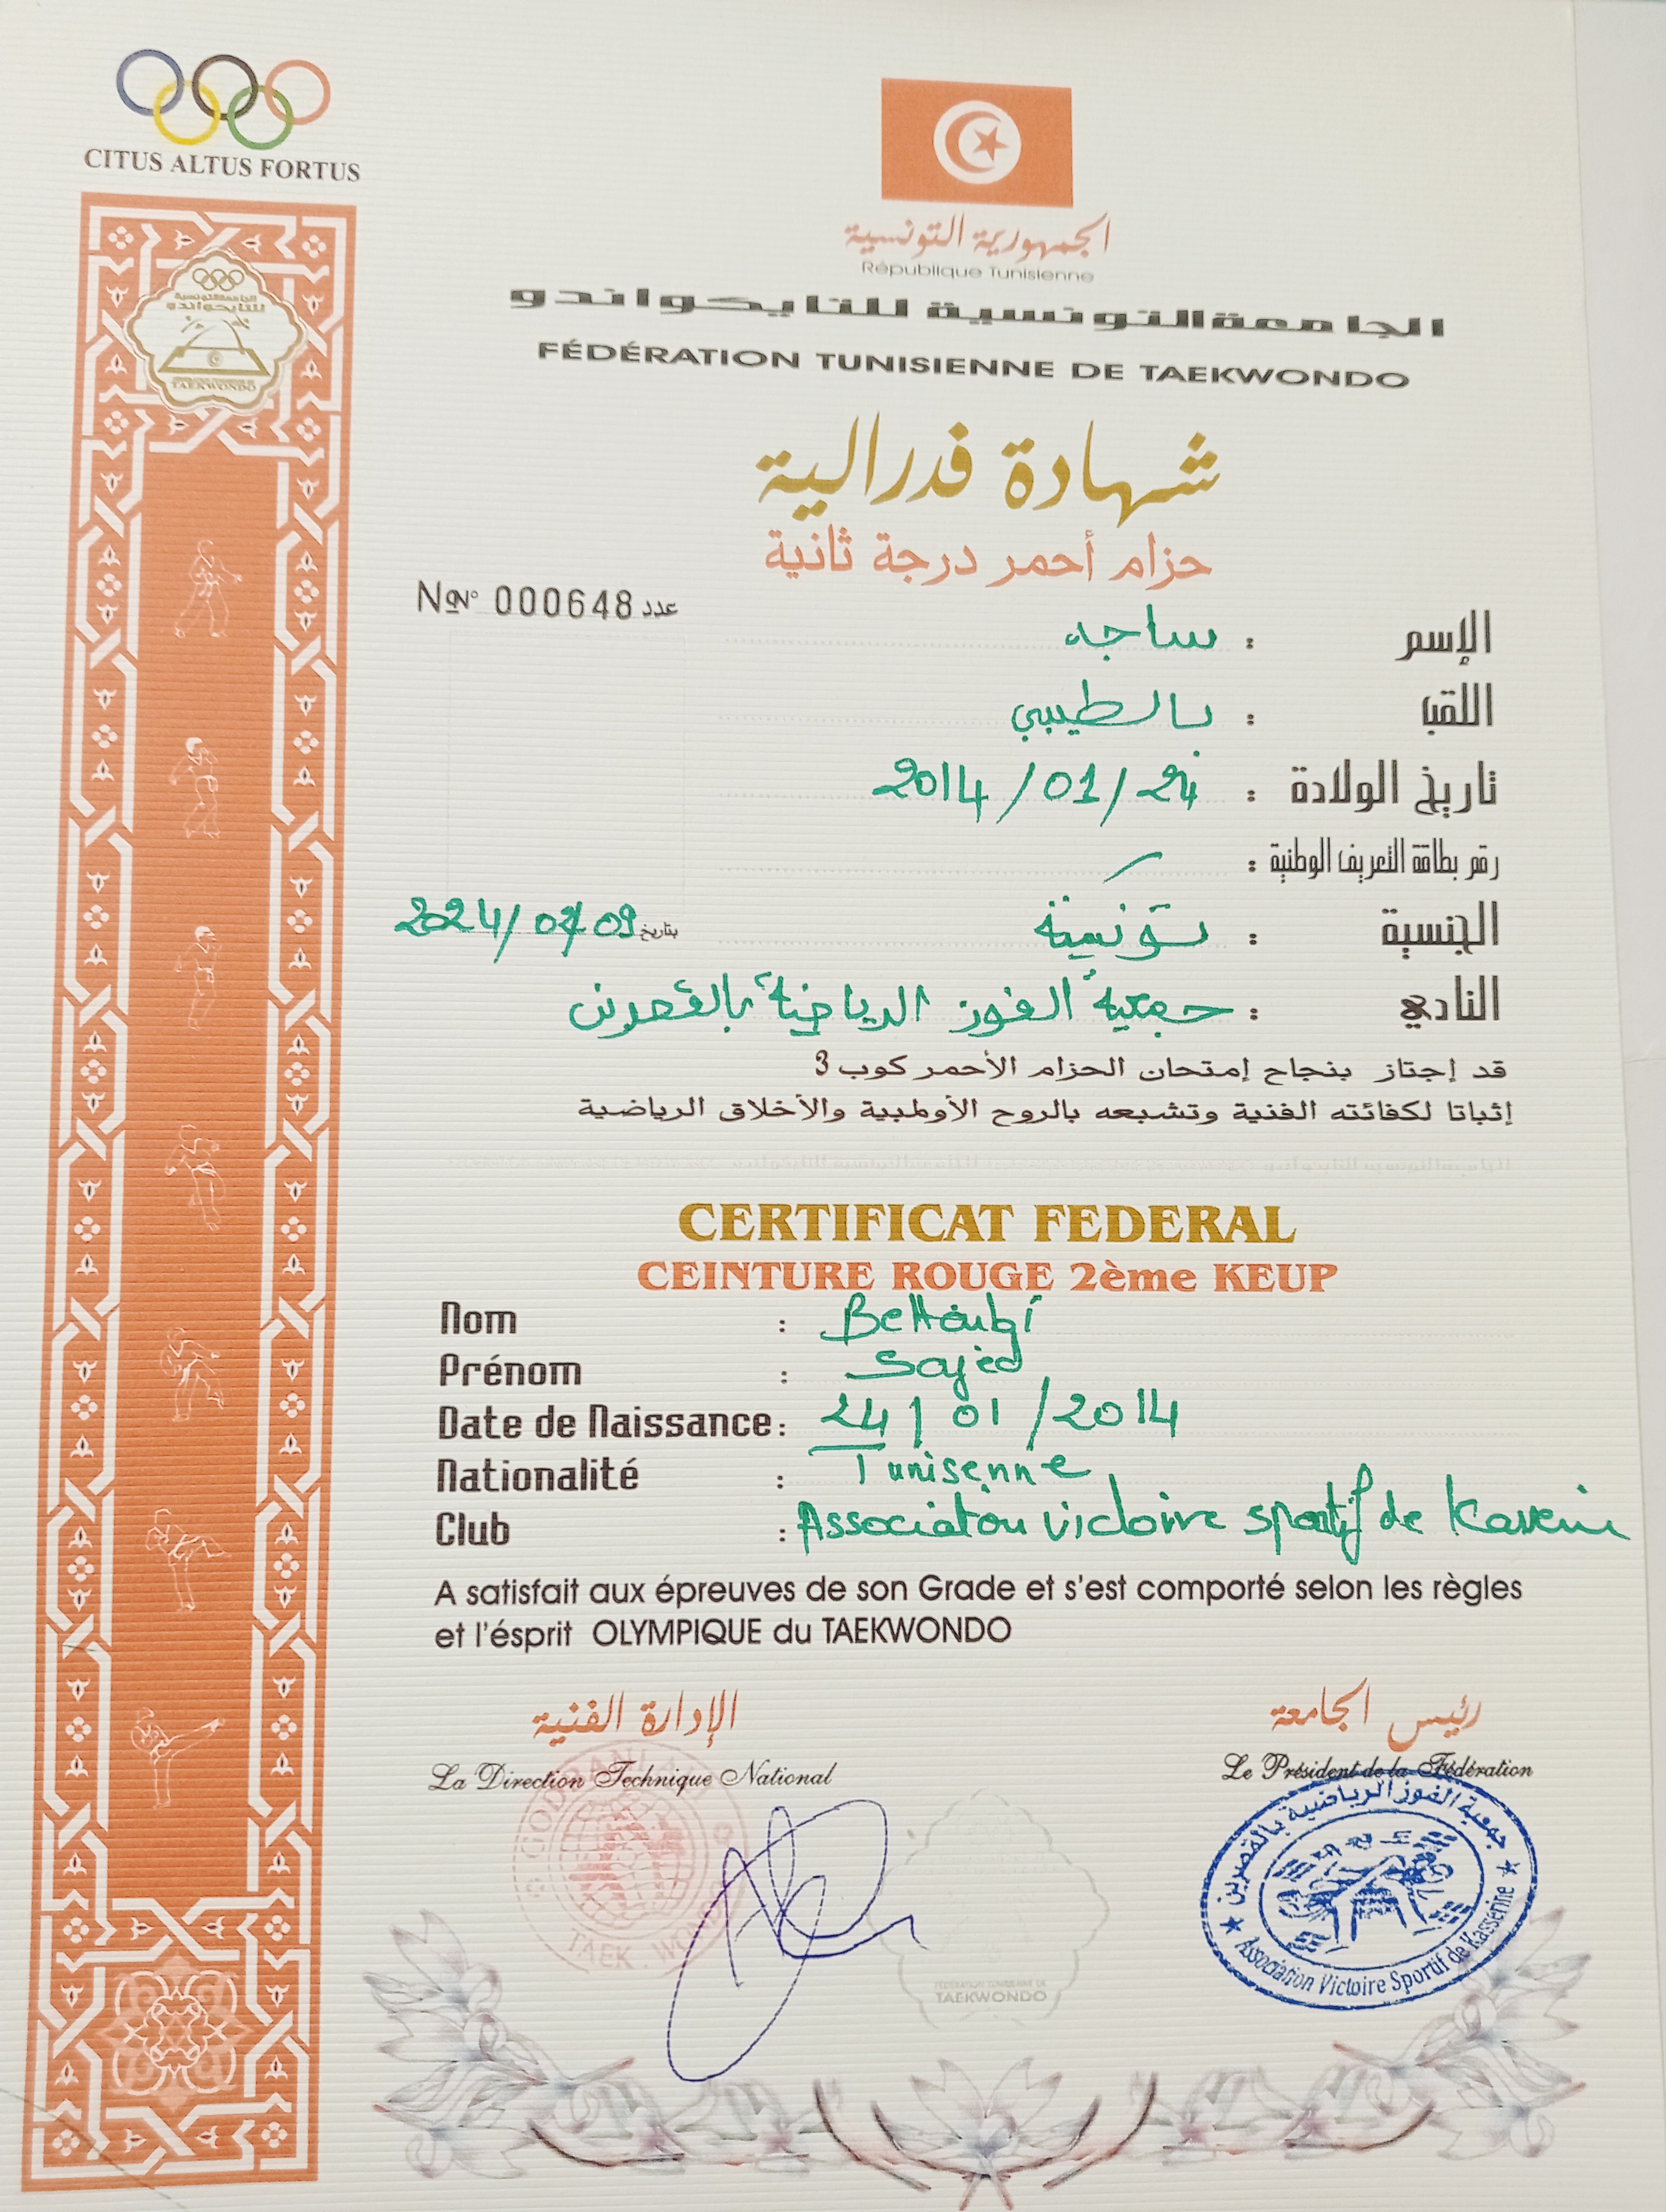 CITUS ALTUS FORTUS
الجمهورية التونسية
République Tunisienne
الجامعة التونسية للتايكواندو
FÉDÉRATION TUNISIENNE DE TAEKWONDO
الجامعة التونسية
للتايكواندو
TAEKWONDO
شهادة فدرالية
حزام أحمر درجة ثانية
N° N° 000648 عدد
الإسم : ساجد
اللقب : بالطيبي
تاريخ الولادة : 24/01/2014
رقم بطاقة التعريف الوطنية :
الجنسية : تونسية
بتاريخ 2024/07/09
النادي : جمعية الفوز الرياضية بالقصرين
قد إجتاز بنجاح إمتحان الحزام الأحمر كوب 3
إثباتا لكفائته الفنية وتشبعه بالروح الأولمبية والأخلاق الرياضية
CERTIFICAT FEDERAL
CEINTURE ROUGE 2ème KEUP
Nom :
Prénom : Sajed
Date de Naissance : 24/01/2014
Nationalité : Tunisenne
Club : Association victoire sportif de
A satisfait aux épreuves de son Grade et s'est comporté selon les règles
et l'ésprit OLYMPIQUE du TAEKWONDO
الإدارة الفنية
La Direction Technique National
رئيس الجامعة
Le Président de la Fédération
TAEK.WO
جمعية الفوز الرياضية بالقصرين
Association Victoire Sportif de Kasserine
FÉDÉRATION TUNISIENNE DE
TAEKWONDO